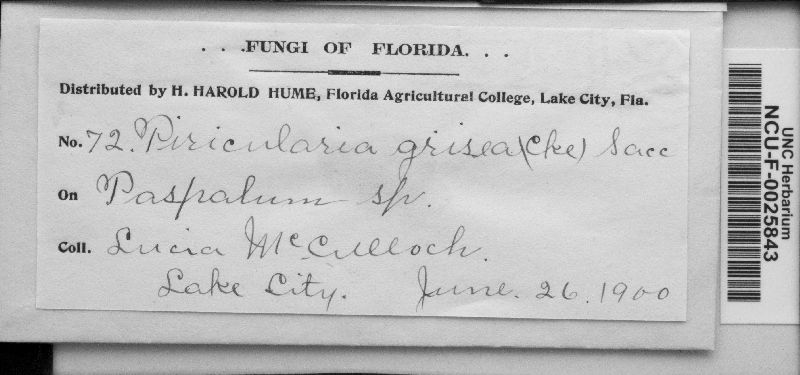 . . .FUNGI OF FLORIDA. . .
Distributed by H. HAROLD HUME, Florida Agricultural College, Lake City, Fla.
No. 72. Piricularia grisea (Cke) Sacc
On Paspalum sp.
Coll. Lucia McCulloch.
Lake City. June. 26. 1900
UNC Herbarium
NCU-F-0025843